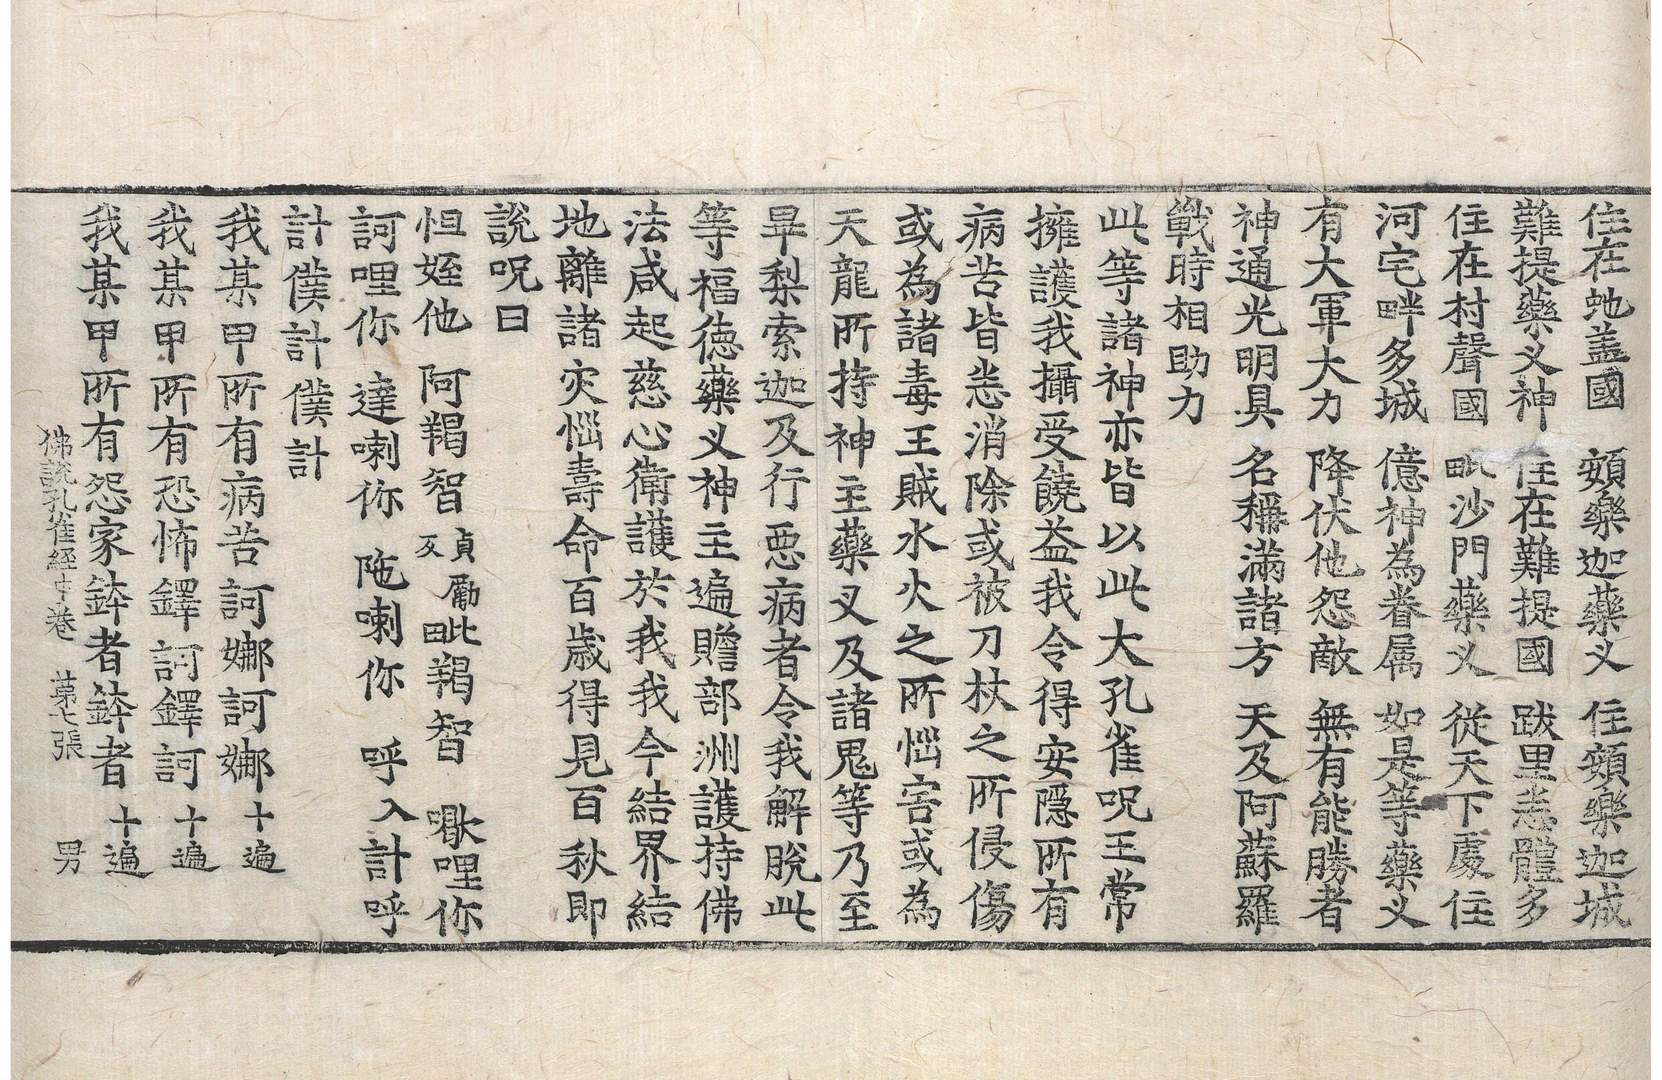 住在虵盖國　頞樂迦藥叉　住頞樂迦城
難提藥叉神　住在難提國　跋里恙體多
住在村聲國　毗沙門藥义　從天下處住
河宅畔多城　億神為眷属　如是等藥义
有大軍大力　降伏他怨敵　無有能勝者
神通光明具　名稱滿諸方　天及阿蘇羅
戰時相助力
此等諸神亦皆以此大孔雀呪王常
擁護我攝受饒益我令得安隱所有
病苦皆恙消除或被刀杖之所侵傷
或為諸毒王賊水火之所惱害或為
天龍所持神主藥叉及諸鬼等乃至
畢梨索迦及行惡病者令我解脫此
等福德藥义神主遍贍部洲護持佛
法咸起慈心衛護於我我今結界結
地離諸灾惱壽命百歲得見百秋即
說呪曰
怛姪他　阿羯智貞勵反田比羯智　㘑哩你
訶哩你　達喇你　陁喇你　呼入計呼
計僕計僕計
我某甲所有病苦訶娜訶娜十遍
我某甲所有恐怖鐸訶鐸訶十遍
我某甲所有怨家鉢者鉢者十遍
佛說孔雀経中卷　苐七張　男